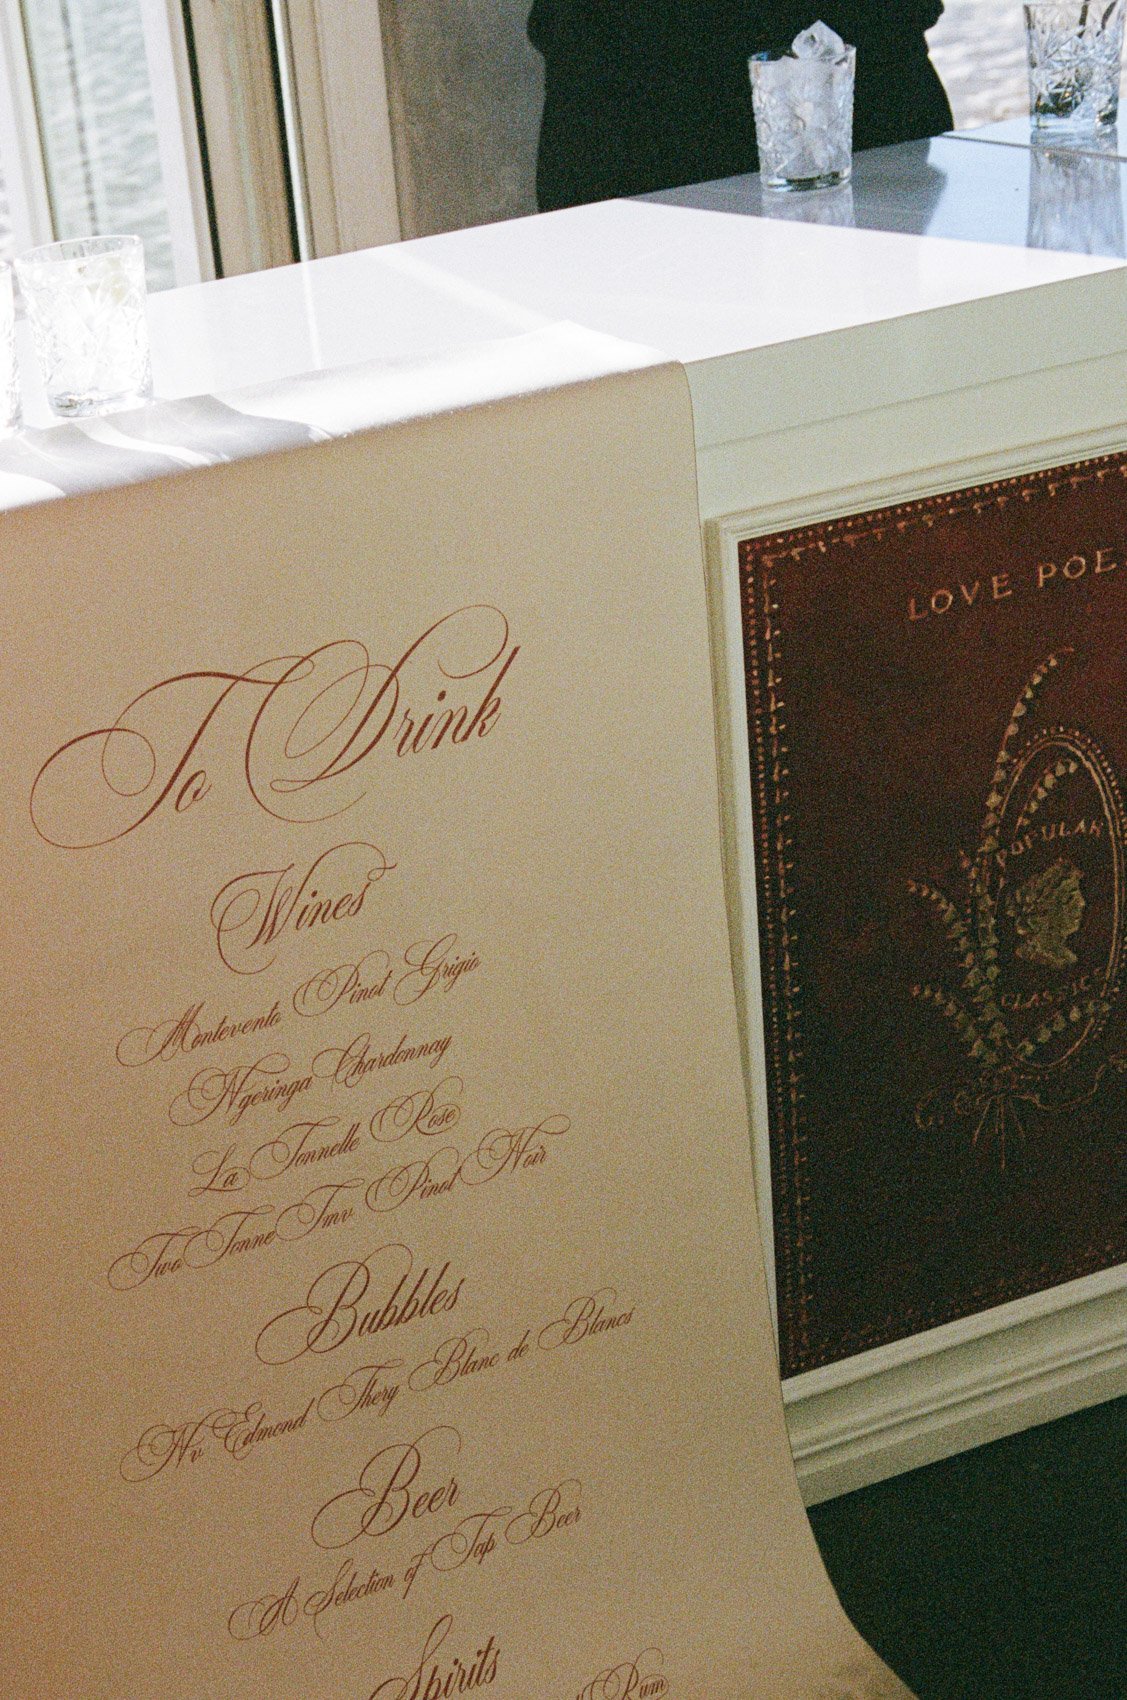 To Drink
Wines
Montevento Pinot Grigio
Ngeringa Chardonnay
La Tonnelle Rose
Two Tonne Tmv Pinot Noir
Bubbles
Nv Edmond Thery Blanc de Blancs
Beer
A Selection of Tap Beer
Spirits
Rum
LOVE POE
POPULAR
CLASSIC